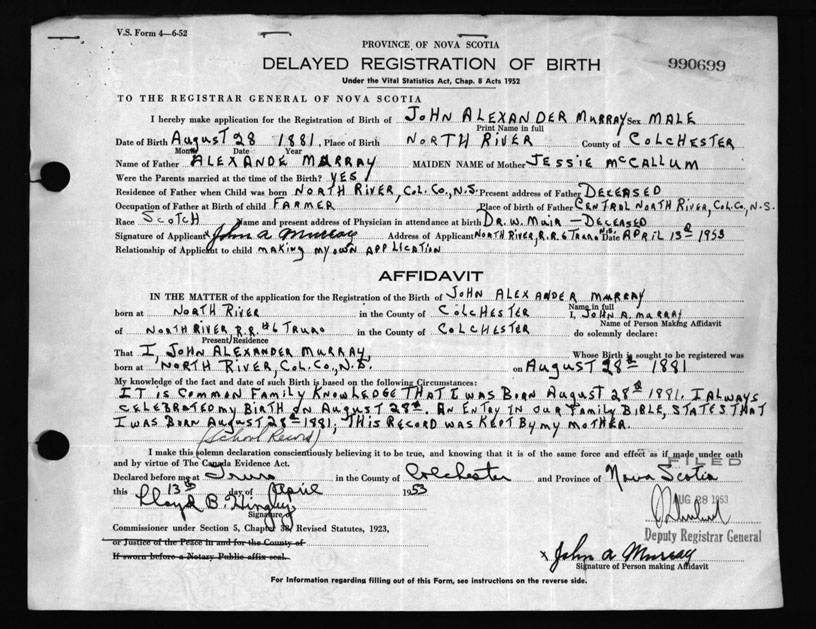 V.S. Form 4—6-52
PROVINCE OF NOVA SCOTIA
DELAYED REGISTRATION OF BIRTH
990699
Under the Vital Statistics Act, Chap. 8 Acts 1952
TO THE REGISTRAR GENERAL OF NOVA SCOTIA
I hereby make application for the Registration of Birth of JOHN ALEXANDER MURRAY Sex MALE
Print Name in full
Date of Birth AUGUST 28 1881, Place of Birth NORTH RIVER County of COLCHESTER
Month Date Year
Name of Father ALEXANDE MURRAY MAIDEN NAME of Mother JESSIE McCALLUM
Were the Parents married at the time of the Birth? YES
Residence of Father when Child was born NORTH RIVER, COL. CO., N.S. Present address of Father DECEASED
Occupation of Father at Birth of child FARMER Place of birth of Father CENTRAL NORTH RIVER, COL.CO, N.S.
Race SCOTCH Name and present address of Physician in attendance at birth DR. W. MUIR — DECEASED
Signature of Applicant x John A Murray Address of Applicant NORTH RIVER, R.R. 6 TRURO N.S. Date APRIL 13th 1953
Relationship of Applicant to child MAKING MY OWN APPLICATION
AFFIDAVIT
IN THE MATTER of the application for the Registration of the Birth of JOHN ALEXANDER MURRAY
Name in full
born at NORTH RIVER in the County of COLCHESTER I, JOHN A. MURRAY
Name of Person Making Affidavit
of NORTH RIVER R.R. #6 TRURO in the County of COLCHESTER do solemnly declare:
Present Residence
That I, JOHN ALEXANDER MURRAY, Whose Birth is sought to be registered was
born at NORTH RIVER, COL. CO., N.S. on AUGUST 28th 1881
My knowledge of the fact and date of such Birth is based on the following Circumstances:
IT IS COMMON FAMILY KNOWLEDGE THAT I WAS BORN AUGUST 28th 1881. I ALWAYS
CELEBRATED MY BIRTH ON AUGUST 28th. AN ENTRY IN OUR FAMILY BIBLE, STATES THAT
I WAS BORN AUGUST 28th 1881, THIS RECORD WAS KEPT BY MY MOTHER.
(School Record)
I make this solemn declaration conscientiously believing it to be true, and knowing that it is of the same force and effect as if made under oath
and by virtue of The Canada Evidence Act.
FILED
Declared before me at Truro in the County of Colchester and Province of Nova Scotia
this 13th day of April 1953
AUG 28 1953
Lloyd B. Hingley
Signature of
Deputy Registrar General
Commissioner under Section 5, Chapter 38, Revised Statutes, 1923,
or Justice of the Peace in and for the County of
If sworn before a Notary Public affix seal.
x John A Murray
Signature of Person making Affidavit
For Information regarding filling out of this Form, see instructions on the reverse side.